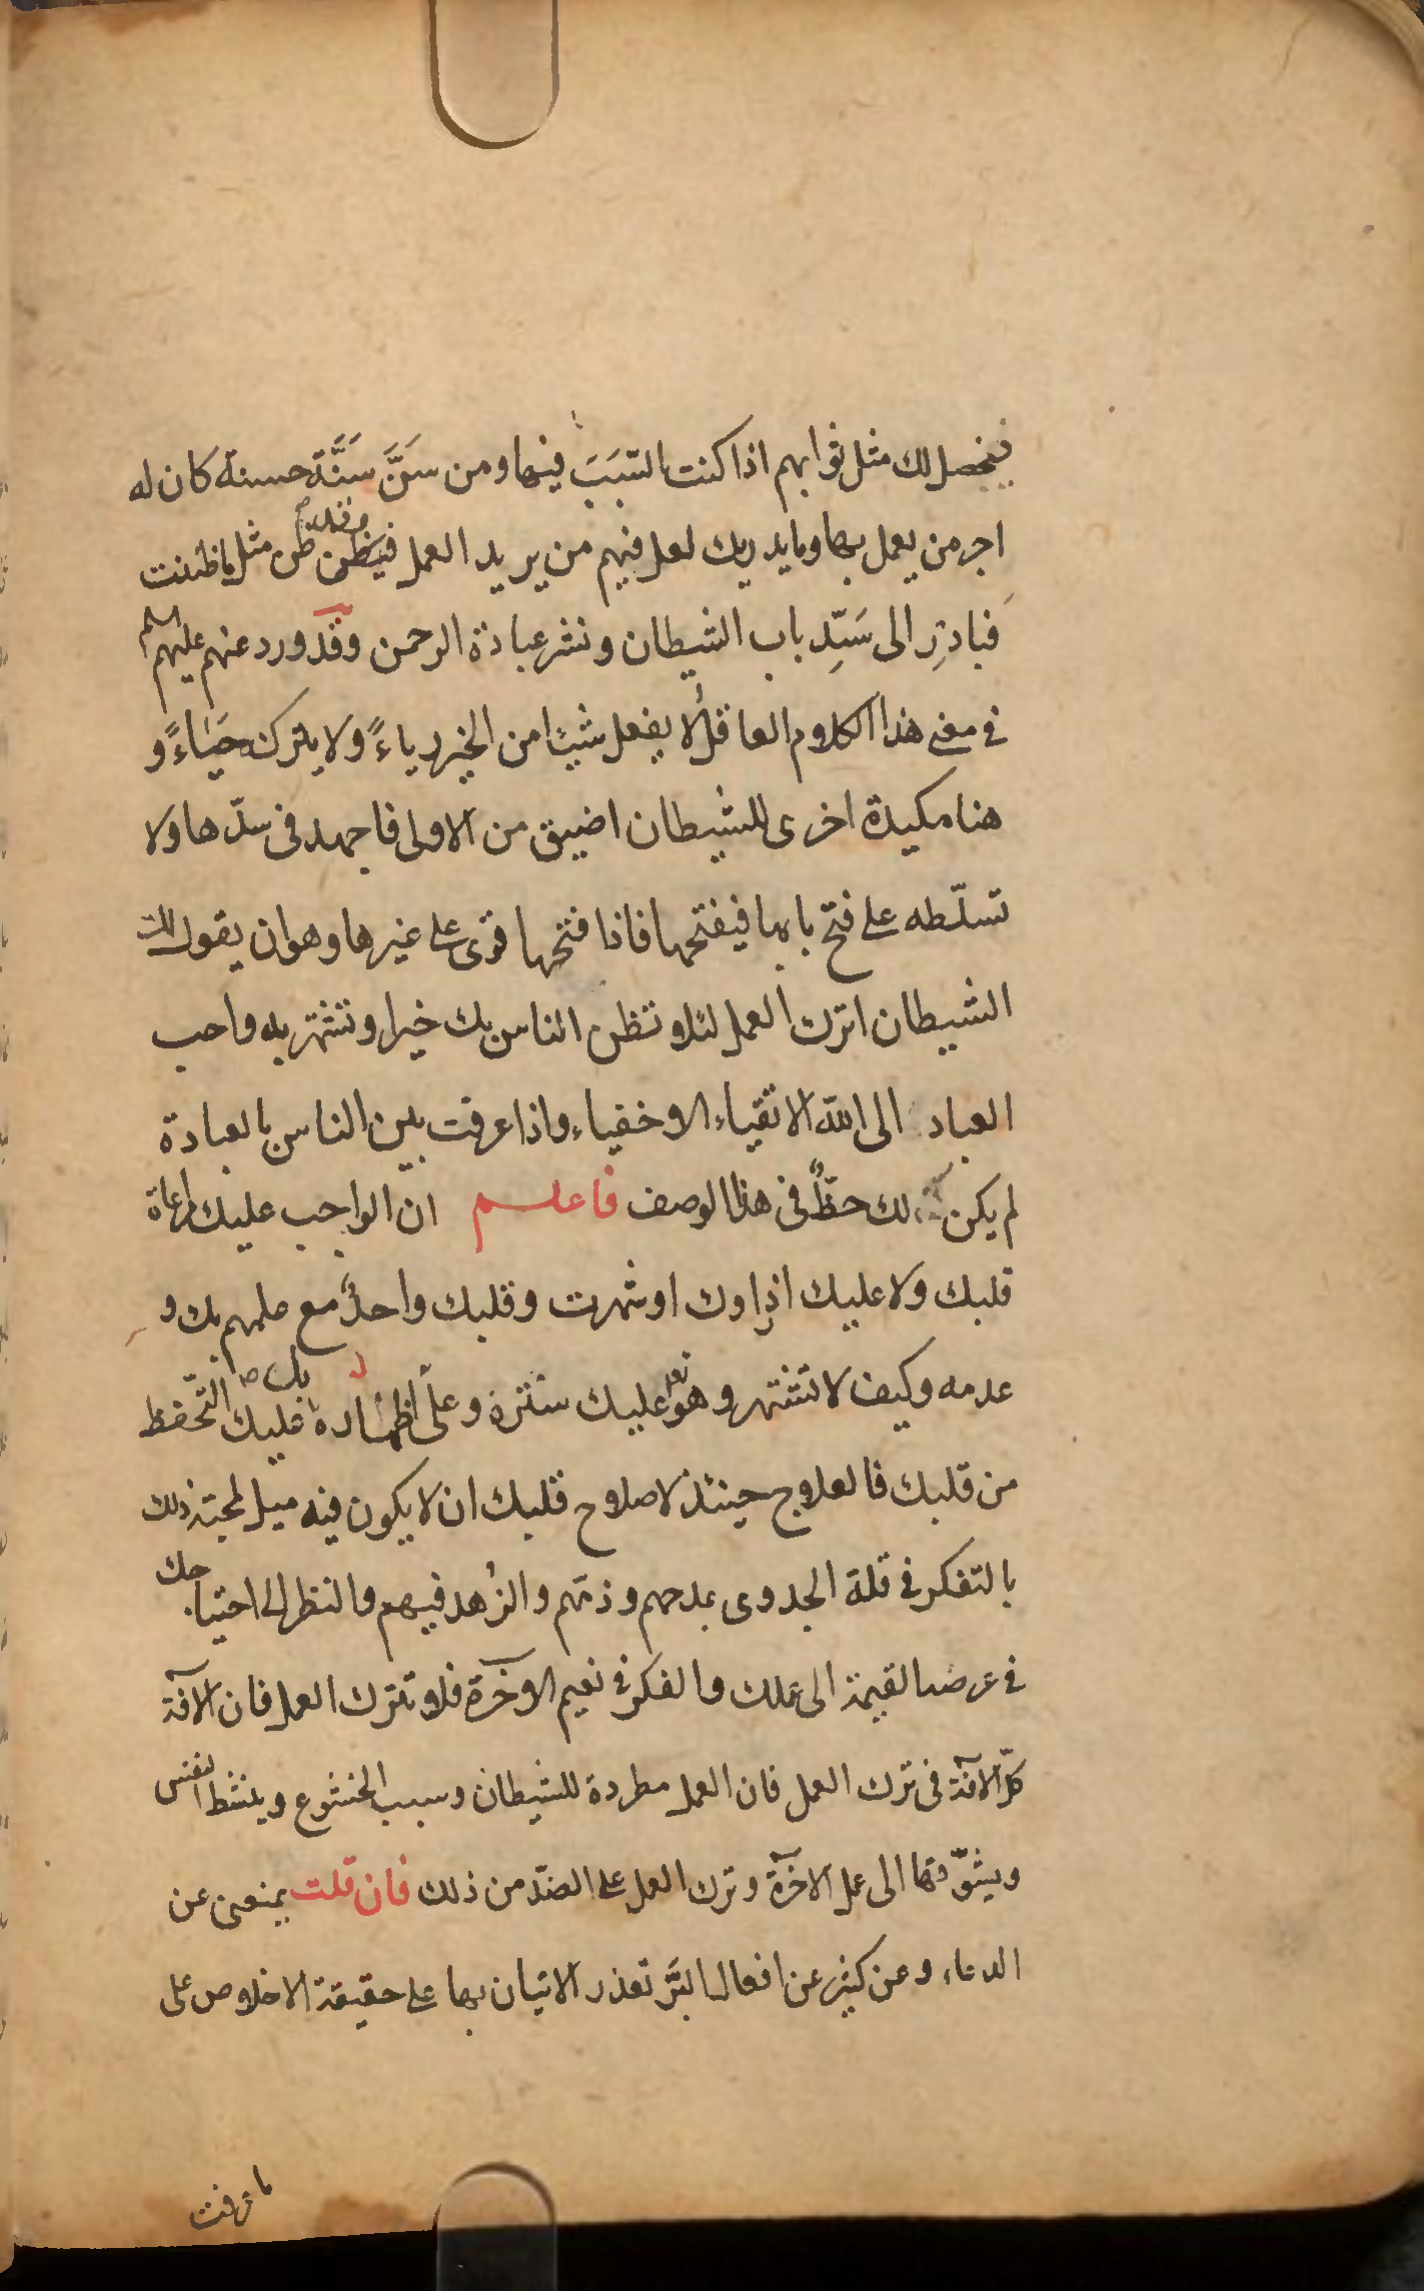 فيحصل لك مثل ثوابهم اذا كنت السَّبَبَ فيها ومن سَنَّ سَنَّة حسنة كان له
اجر من يعمل بها وما يدريك لعل فيهم من يريد العمل فيظن مثل ما ظننت
فبادِر الى سَدِّ باب الشيطان ونشر عبادة الرحمن وقد ورد عنهم عليهم السلم
فى معنى هذا الكلام العاقل لا يفعل شيئًا من الخير رياءً ولا يتركه حَيَاءً و
هنا مكيدة اخرى للشيطان اضيق من الاولى فاجهد فى سدّها ولا
تسلّطه على فتح بابها فيفتحها فاذا فتحها قوى على غيرها وهو ان يقول لك
الشيطان اترك العمل لئلا تظن الناس بك خيرا وتشتهر به واحب
العباد الى الله الاتقياء الاخفياء واذا عرفت بين الناس بالعبادة
لم يكن لك حظٌّ فى هذا الوصف فاعلم ان الواجب عليك مراعاة
قلبك ولا عليك اذا وك او شهرت وقلبك واحدٌ مع علمهم بك و
عدمه وكيف لا تشتهر وهو تع عليك ستره وعلىّ اظهاره بل عليك التّحفظ
من قلبك فالعلاج حينئذ لاصلاح قلبك ان لا يكون فيه ميل لمحبة ذلك
بالتفكر فى قلة الجدوى بمدحهم وذمّهم والزُهد فيهم والنظر الى احتياجك
فى عرصه القيمة الى عملك والفكر فى نعيم الاخرة فلا تترك العمل فان الآفة
كلّ الآفة فى ترك العمل فان العمل مطردة للشيطان وسبب الخشوع وينشط النفس
ويشوّقها الى عمل الآخرة وترك العمل على الضدّ من ذلك فان قلت يمنعنى عن
الدعاء وعن كثير عن افعال البّر تعذر الاتيان بها على حقيقة الاخلاص على
ما عرفت